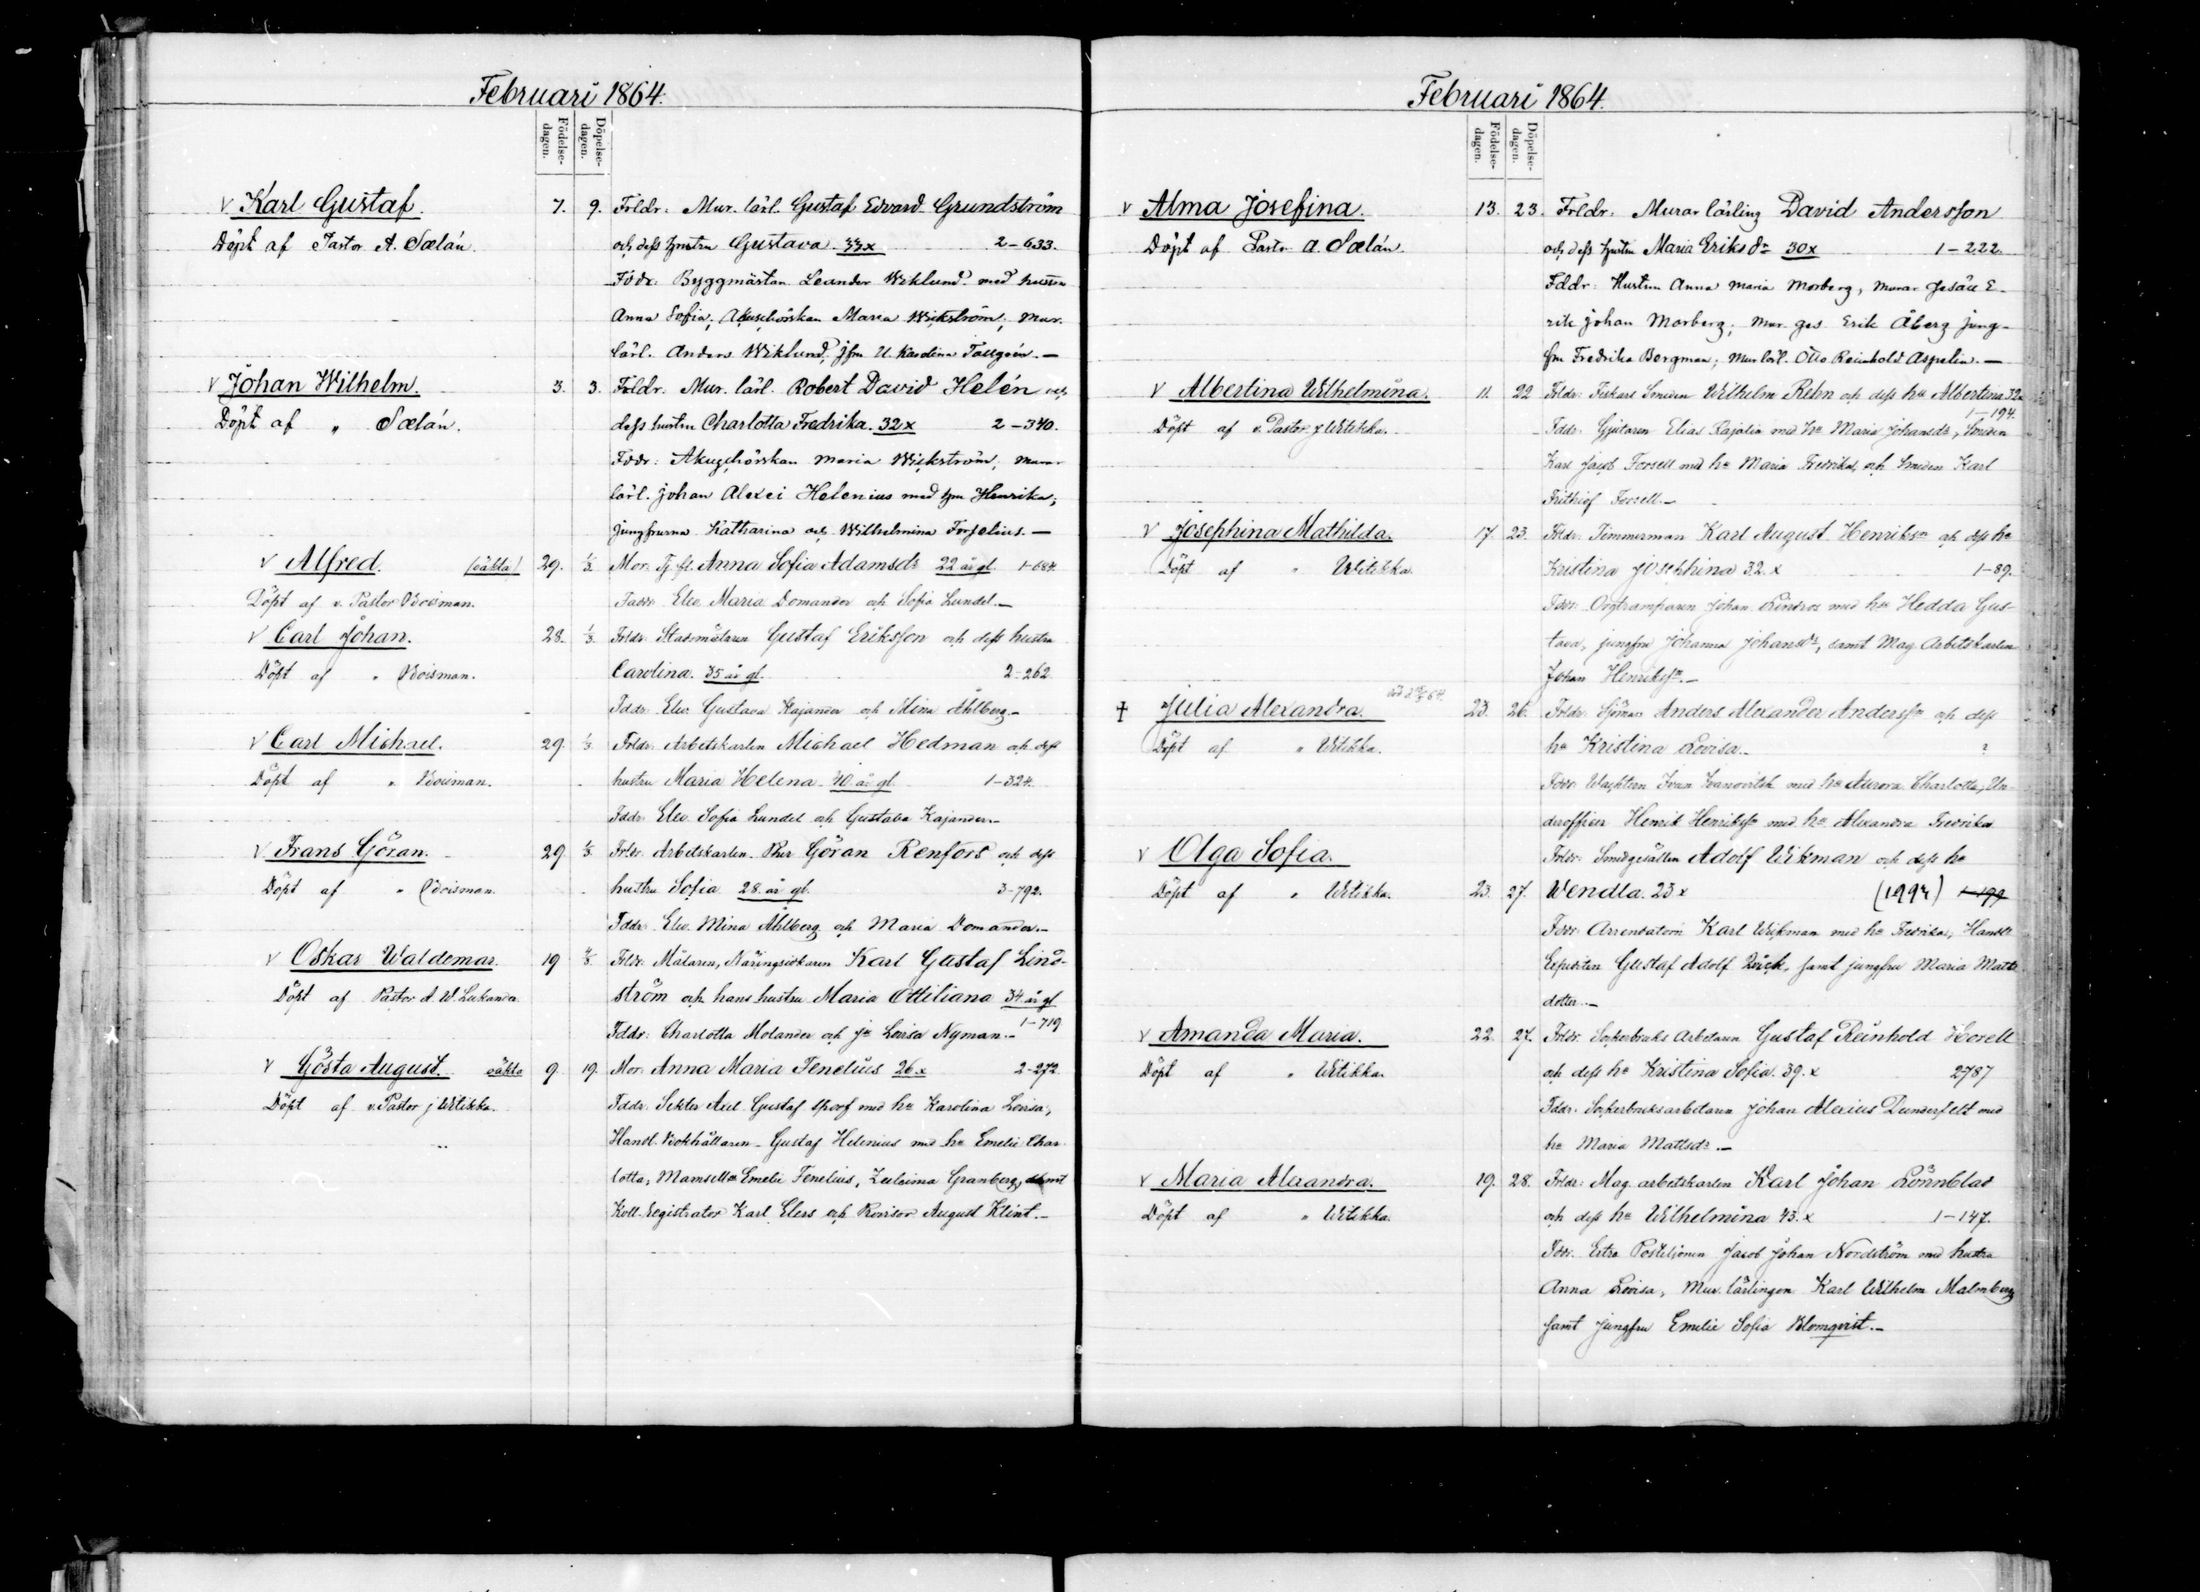 Februari 1864.
Födelse-dagen.
Döpelse-dagen.
Karl Gustaf. 7. 9. Frldr: Mur. lärl. Gustaf Edvard Grundström
Döpt af Pastor A. Sælán. och dess hustru Gustava. 33x 2-633.
Fddr: Byggmästar. Leander Wiklund med hustru
Anna Sofia, Maria Wickström, Mur.
lärl. Anders Wiklund, jfru U. Karolina Tallgrén.—
Johan Wilhelm. 3. 3. Frldr. Mur. lärl. Robert David Helén och
Döpt af " Sælán. dess hustru Charlotta Fredrika. 32x 2-340.
Fddr: Maria Wickström, Murar
lärl. Johan Alexei Helenius med hru Henrika,
jungfrurna Katharina och Wilhelmina Forselius.—
Alfred. (oäkta) 29. 1/3. Mor. Tj. fl. Anna Sofia Adamsdr 22 år gl. 1-684.
Döpt af v. Pastor Boisman. Faddr. Elev. Maria Domander och Sofia Lundel.—
Carl Johan. 28. 1/3. Frldr. Gustaf Eriksson och dess hustru
Döpt af " Boisman. Carolina. 35 år gl. 2-262
Fddr: Elev. Gustava Kajander och Mina Åhlberg.—
Carl Michael. 29. 1/3. Frldr. Arbetskarlen Michael Hedman och dess
Döpt af " Boisman. hustru Maria Helena. 40 år gl. 1-324.
Fddr. Elev. Sofia Lundel och Gustava Kajander.—
Frans Göran. 29 1/3. Frldr. Arbetskarlen. Göran Renfors och dess
Döpt af " Boisman. hustru Sofia 28 år gl. 3-792.
Fddr: Elev. Mina Åhlberg och Maria Domander.—
Oskar Waldemar. 19 Frldr. Målaren, Näringsidkaren Karl Gustaf Lind-
Döpt af Pastor A. W. Lukander ström och hans hustru Maria Ottiliana 34 år gl
Fddr: Charlotta Molander och jfr Lovisa Nyman.— 1-719
Gösta August. oäkta 9. 19. Mor. Anna Maria Fenelius 26.x 2-272
Döpt af v. Pastor J Witikka. Fddr. Axel Gustaf Spoof med hu Karolina Lovisa,
Handl. Bokhållaren Gustaf Helenius med hu Emelie Char-
lotta, Mamsella Emelie Fenelius, Zuleima Granberg, samt
Koll. Registrator Karl Elers och Revisor August Klint.—
Februari 1864.
Födelse-dagen.
Döpelse-dagen.
Alma Josefina. 13. 23. Frldr: Murar lärling David Andersson
Döpt af Pastor A. Sælán. och dess hustru Maria Eriksdr 30x 1-222.
Fddr: Hustru Anna Maria Morberg, Murar Gesäll E-
rik Johan Morberg; Mur. ges. Erik Åberg jung-
fru Fredrika Bergman; Mur lärl. Otto Reinhold Aspelin.—
Albertina Wilhelmina. 11. 22 Frldr: Fiskars Smeden Wilhelm Rehn och dess hu Albertina 32x
1-194.
Döpt af v. Pastor J Witikka. Fddr: Gjutaren Elias Rajalin med hu Maria Johansdr, Smeden
Karl Jacob Forsell med hu Maria Fredrika, och Smeden Karl
Frithiof Forsell.—
Josephina Mathilda. 17. 23. Frldr: Timmerman Karl August Henrikssn och dess hu
Döpt af " Witikka. Kristina Josephina 32. x 1-89.
Fddr: Orgtramparen Johan Lindroos med hu Hedda Gus-
tava, jungfru Johanna Johansdr, samt Mag. Arbetskarlen
Johan Henrikssn.—
† Julia Alexandra. 23. 26. Frldr: Sjöman Anders Alexander Anderssn och dess
Döpt af " Witikka. hu Kristina Lovisa.— ?
Fddr: Ivan Ivanovitsh med hu Aurora Charlotta, Un-
derofficer Henrik Henrikssn med hu Alexandra Fredrika
Olga Sofia. Frldr: Smidgesällen Adolf Wikman och dess hu
Döpt af " Witikka. 23. 27. Wendla. 23 x (1994) 1-199
Fddr: Arrendatorn Karl Wikman med hu Fredrika, Handls
Expediten Gustaf Adolf Wick, samt jungfru Maria Matts
dotter.—
Amanda Maria. 22. 27. Frldr: Sockerbruks Arbetaren Gustaf Reinhold Horell
Döpt af " Witikka. och dess hu Kristina Sofia. 39. x 2787
Fddr: Sockerbruksarbetaren Johan Alexius Dunderfelt med
hu Maria Mattsdr.—
Maria Alexandra. 19. 28. Frldr: Mag. arbetskarlen Karl Johan Lönnblad
Döpt af " Witikka. och dess hu Wilhelmina 43. x 1-147.
Fddr: Extra Postiljonen Jacob Johan Nordström med hustru
Anna Lovisa, Mur. lärlingen Karl Wilhelm Malmberg
samt jungfru Emelie Sofia Blomqvist.—